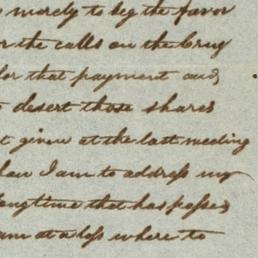 merely to beg the favor
the calls on the Crug
for that payment and
desert those shares
given at the last meeting
I am to address my
longtime that has posses
am at a loss where to